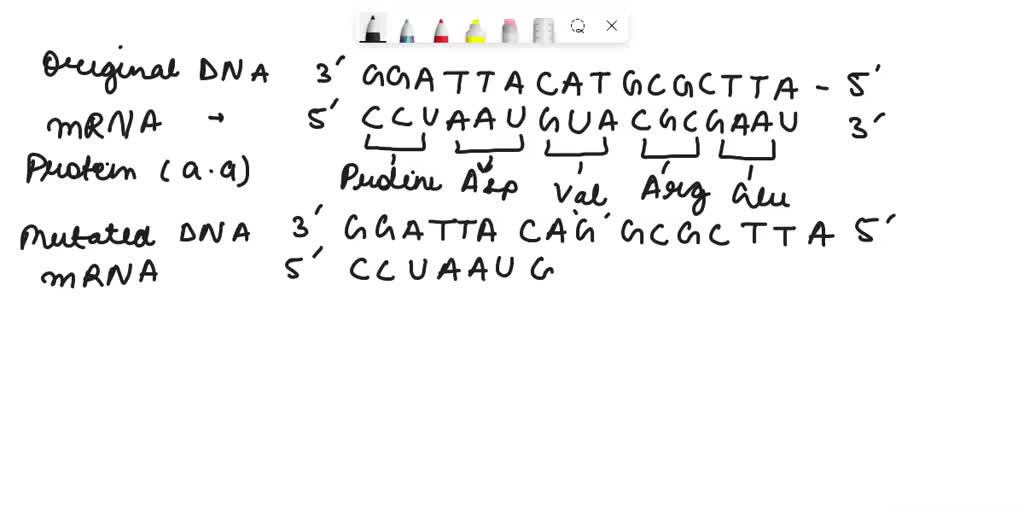 Original DNA 3' GGATTACATGCGCTTA - 5'
mRNA → 5' CCUAAUGUACGCGAAU 3'
Protein (a.a) Proline Asp Val Arg Glu
Mutated DNA 3' GGATTA CAG' GCGCTTA 5'
mRNA 5' CCUAAUG